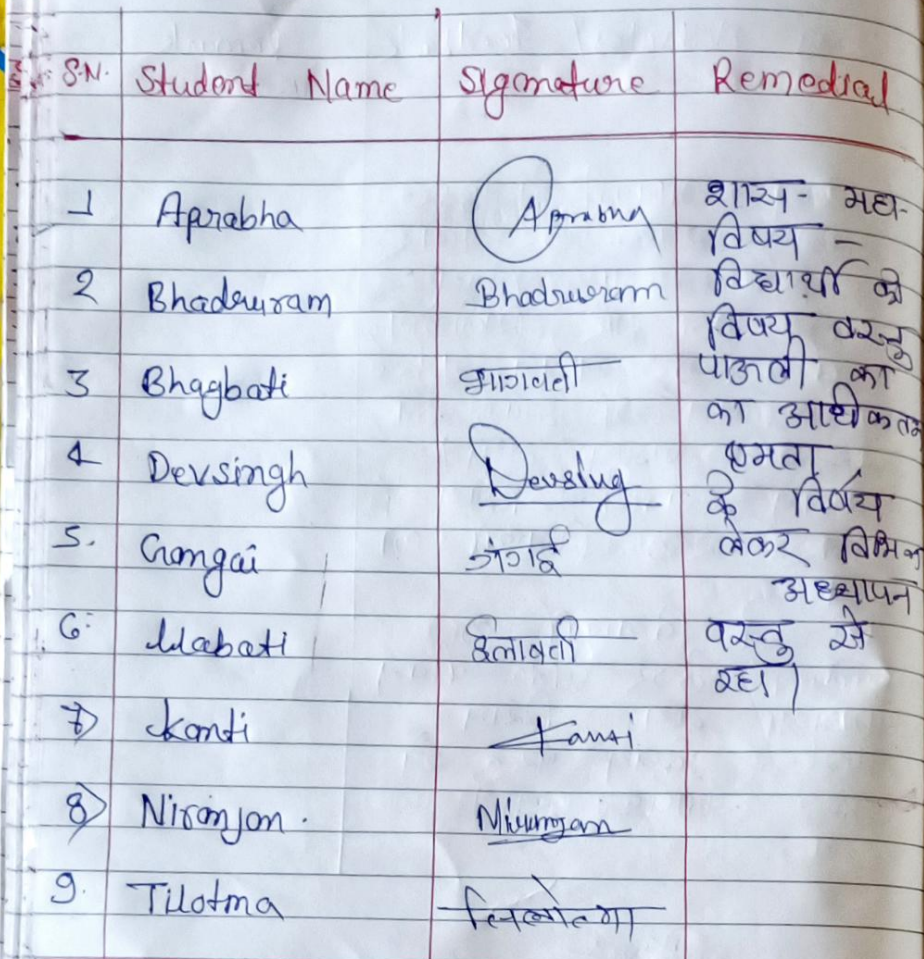 S.N. Student Name Sigmature Remedial
1 Aprabha Aprabha शास- महा-
विषय -
2 Bhadruram Bhadruram विद्यार्थी को
विषय वस्तु
3 Bhagbati भागवती पाऊली का
का आधीकतम
4 Devsingh Devsing क्षमता
के विर्षय
5. Gangai गंगाई लेकर
अध्यापन
6: Ilabati ईलावती वस्तु से
रहा।
7) Kanti Kanti
8) Niranjan. Niranjan
9. Tilotma तिलोत्मा